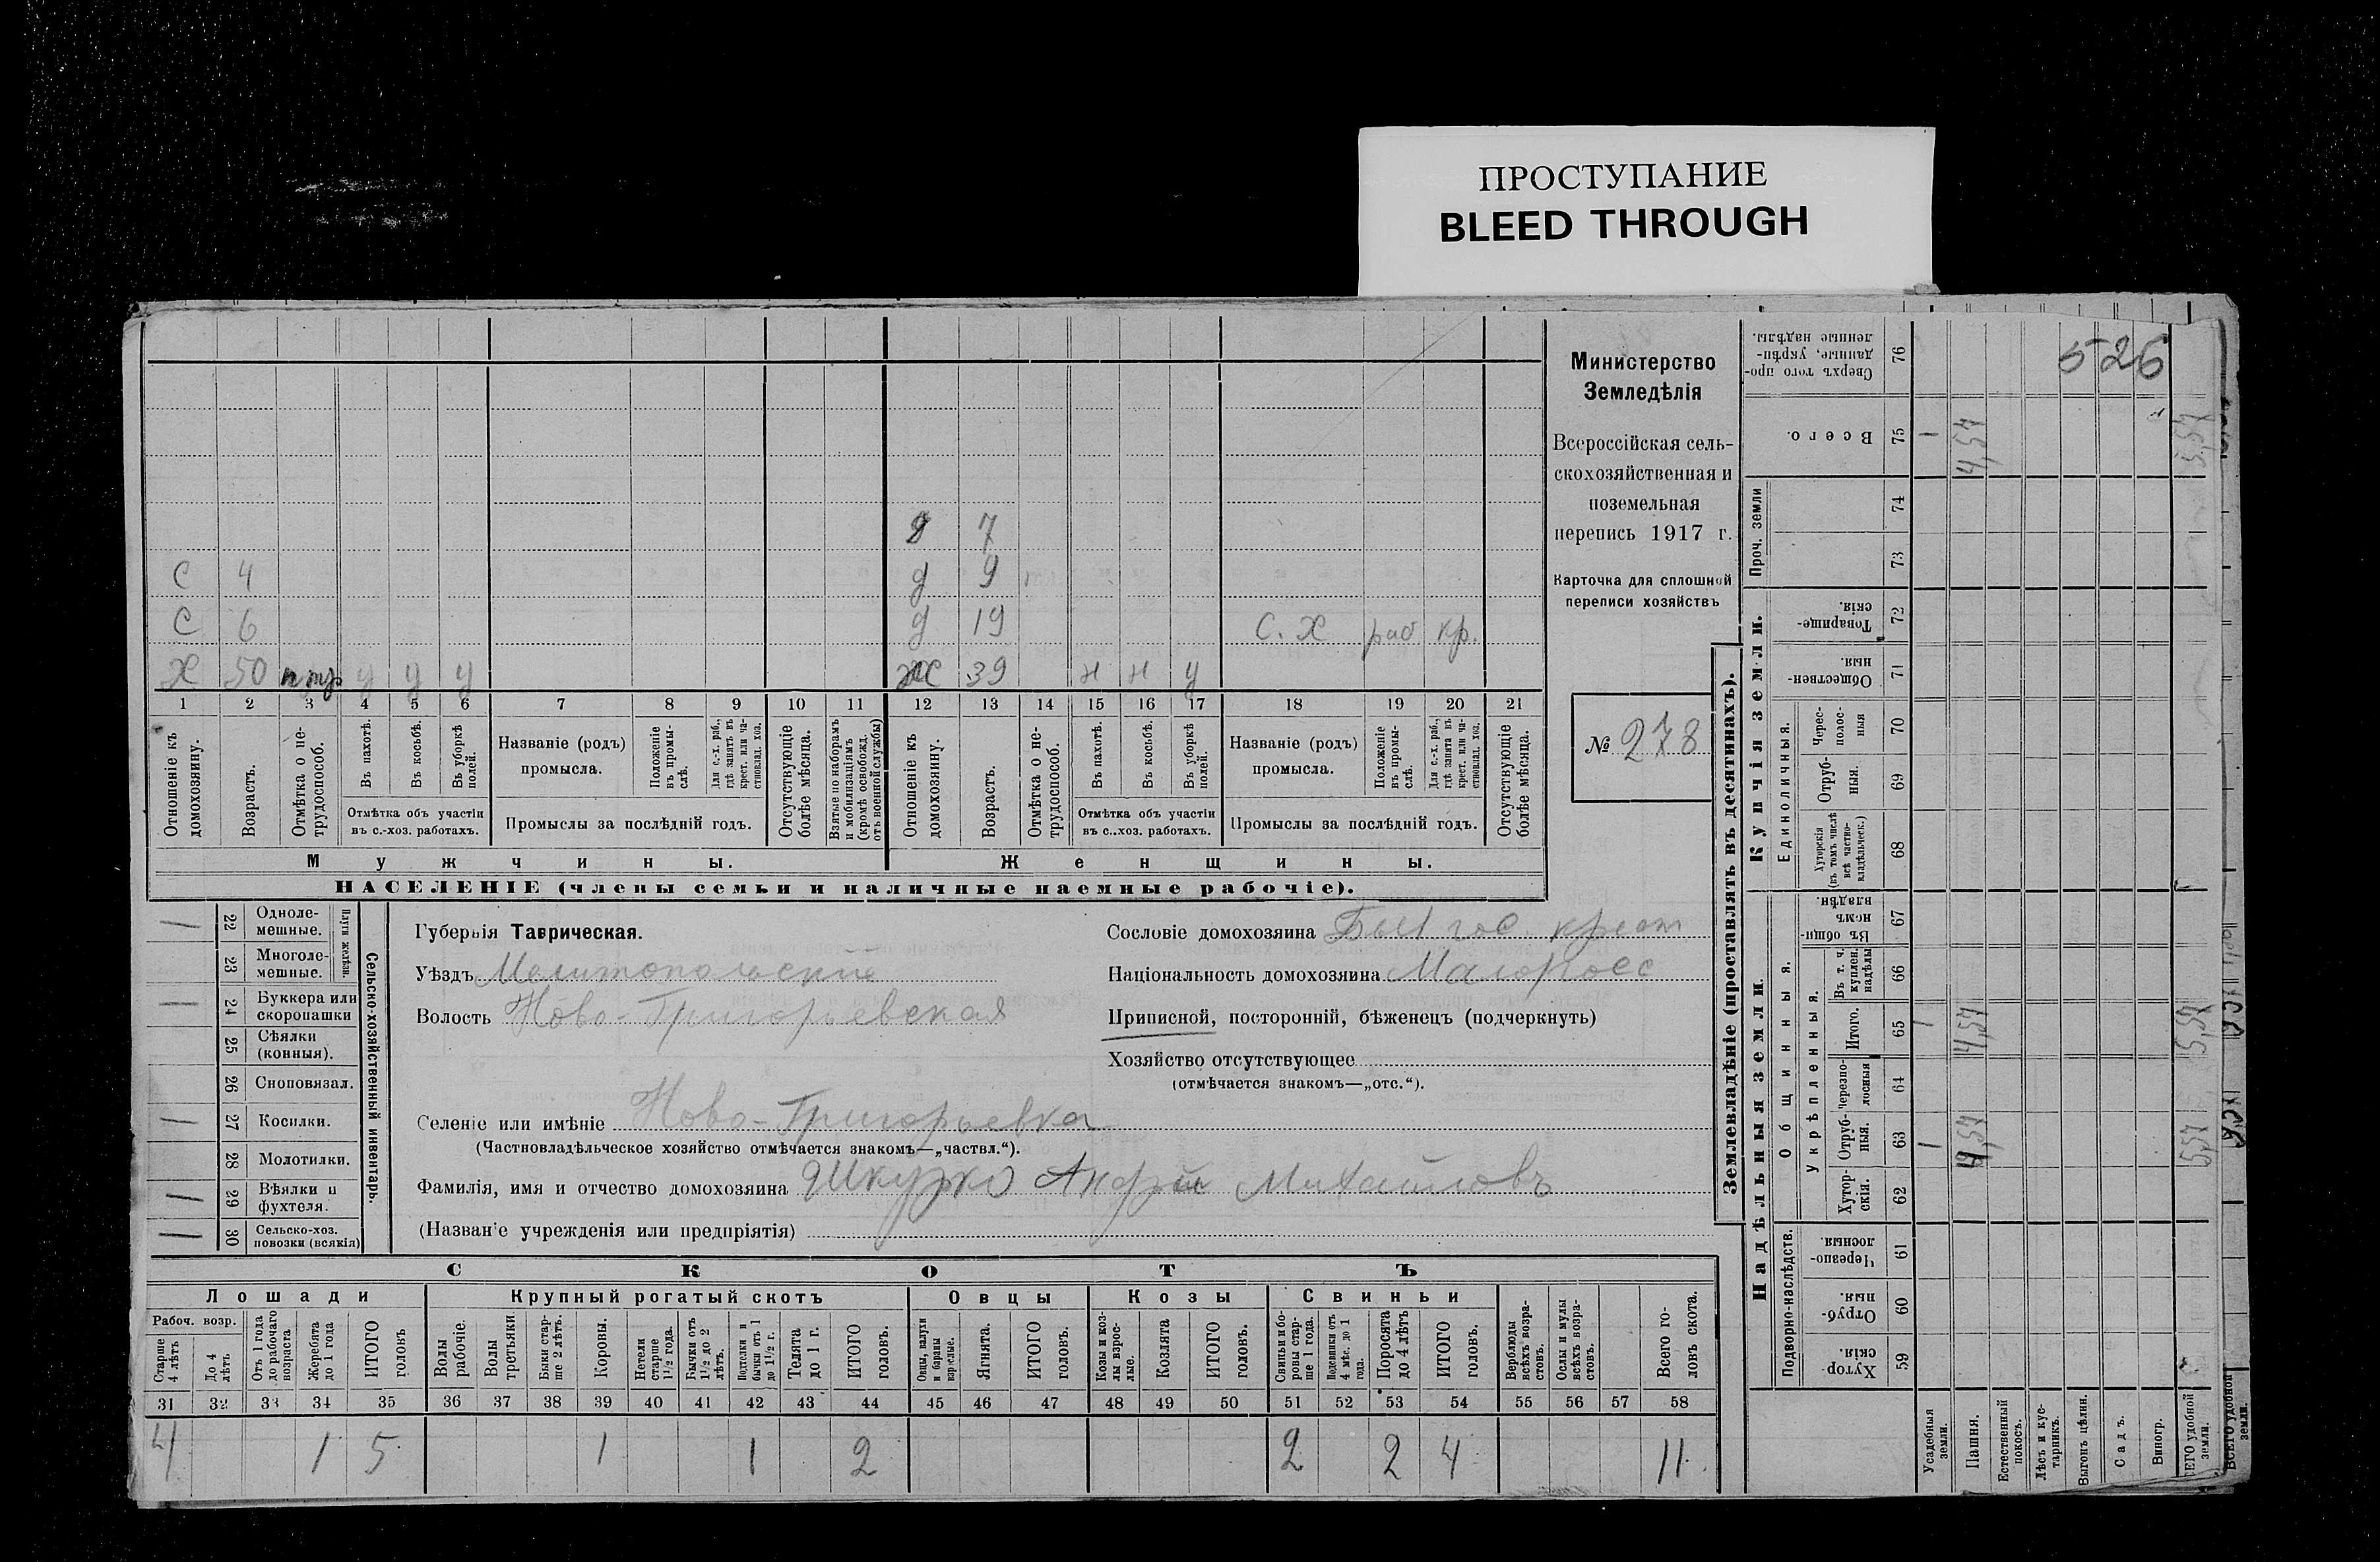 ПРОСТУПАНИЕ
BLEED THROUGH
526
Министерство
Земледѣлія
Всероссійская сель-
скохозяйственная и
поземельная
перепись 1917 г.
Карточка для сплошной
переписи хозяйствъ
№ 278
д 7
С 4 д 9
С 6 д 19 С. Х раб кр.
Х 50 у у у Ж 39 н н у
1 2 3 4 5 6 7 8 9 10 11 12 13 14 15 16 17 18 19 20 21
Отношеніе къ домохозяину.
Возрастъ.
Отмѣтка о не-трудоспособ.
Въ пахотѣ.
Въ косьбѣ.
Въ уборкѣ полей.
Отмѣтка объ участіи
въ с.-хоз. работахъ.
Названіе (родъ)
промысла.
Положеніе въ промы-слѣ.
Для с.-х. раб., гдѣ занятъ въ крест. или ча-стновлад. хоз.
Промыслы за послѣдній годъ.
Отсутствующіе болѣе мѣсяца.
Взятые по наборамъ и мобилизаціямъ (кромѣ освобожд. отъ военной службы)
Отношеніе къ домохозяину.
Возрастъ.
Отмѣтка о не-трудоспособ.
Въ пахотѣ.
Въ косьбѣ.
Въ уборкѣ полей.
Отмѣтка объ участіи
въ с.-хоз. работахъ.
Названіе (родъ)
промысла.
Положеніе въ промы-слѣ.
Для с.-х. раб., гдѣ занята въ крест. или ча-стновлад. хоз.
Промыслы за послѣдній годъ.
Отсутствующіе болѣе мѣсяца.
Мужчины. Женщины.
НАСЕЛЕНІЕ (члены семьи и наличные наемные рабочіе).
Сельско-хозяйственный инвентарь.
Плуги желѣзн.
1 22 Одноле-мешные.
23 Многоле-мешные.
1 24 Буккера или скоропашки
25 Сѣялки (конныя).
26 Сноповязал.
1 27 Косилки.
28 Молотилки.
1 29 Вѣялки и фухтеля.
1 30 Сельско-хоз. повозки (всякія)
Губернія Таврическая.
Уѣздъ Мелитопольский
Волость Ново-Григорьевская
Селеніе или имѣніе Ново-Григорьевка
(Частновладѣльческое хозяйство отмѣчается знакомъ—„частвл.“).
Фамилія, имя и отчество домохозяина Шкурко Андрей Михайловъ
(Названіе учрежденія или предпріятія)
Сословіе домохозяина Быв гос. крест
Національность домохозяина Малоросс
Приписной, посторонній, бѣженецъ (подчеркнуть)
Хозяйство отсутствующее
(отмѣчается знакомъ—„отс.“).
СКОТЪ
Лошади Крупный рогатый скотъ Овцы Козы Свиньи
Рабоч. возр.
Старше 4 лѣтъ
До 4 лѣтъ
Отъ 1 года до рабочаго возраста
Жеребята до 1 года
ИТОГО головъ
Волы рабочіе.
Волы третьяки.
Быки стар-ше 2 лѣтъ.
Коровы.
Нетели старше 1½ года.
Бычки отъ 1½ до 2 лѣтъ.
Подтелки и бычки отъ 1 до 1½ г.
Телята до 1 г.
ИТОГО головъ.
Овцы, валухи и бараны взрослые.
Ягнята.
ИТОГО головъ.
Козы и коз-лы взрос-лые.
Козлята
ИТОГО головъ.
Свиньи и бо-ровы стар-ше 1 года.
Подсвинки отъ 4 мѣс. до 1 года.
Поросята до 4 лѣтъ
ИТОГО головъ.
Верблюды всѣхъ возра-стовъ.
Ослы и мулы всѣхъ возра-стовъ.
Всего го-ловъ скота.
31 32 33 34 35 36 37 38 39 40 41 42 43 44 45 46 47 48 49 50 51 52 53 54 55 56 57 58
4 1 5 1 1 2 2 2 4 11.
Землевладѣніе (проставлять въ десятинахъ).
Надѣльныя земли. Купчія земли. Проч. земли
Подворно-наслѣдств. Общинныя. Единоличныя.
Укрѣпленныя.
59 Хутор-скія.
60 Отруб-ныя.
61 Черезпо-лосныя.
62 Хутор-скія.
63 Отруб-ныя. 1 4,57 5,57
64 Черезпо-лосныя
65 Итого. 1 4,57 5,57
66 Въ т. ч. куплен. надѣлы
67 Въ общин-номъ владѣн.
68 Хуторскія (въ томъ числѣ всѣ частно-владѣльческ.)
69 Отруб-ныя.
70 Черес-полос-ныя
71 Обществен-ныя.
72 Товарище-скія.
73
74
75 Всего. 1 4,57 5,57
76 Сверхъ того про-данные, укрѣп-ленные надѣлы.
Усадебныя земли.
Пашня.
Естественный покосъ.
Лѣсъ и кус-тарникъ.
Выгонъ цѣлин.
Садъ.
Виногр.
ВСЕГО удобной земли.